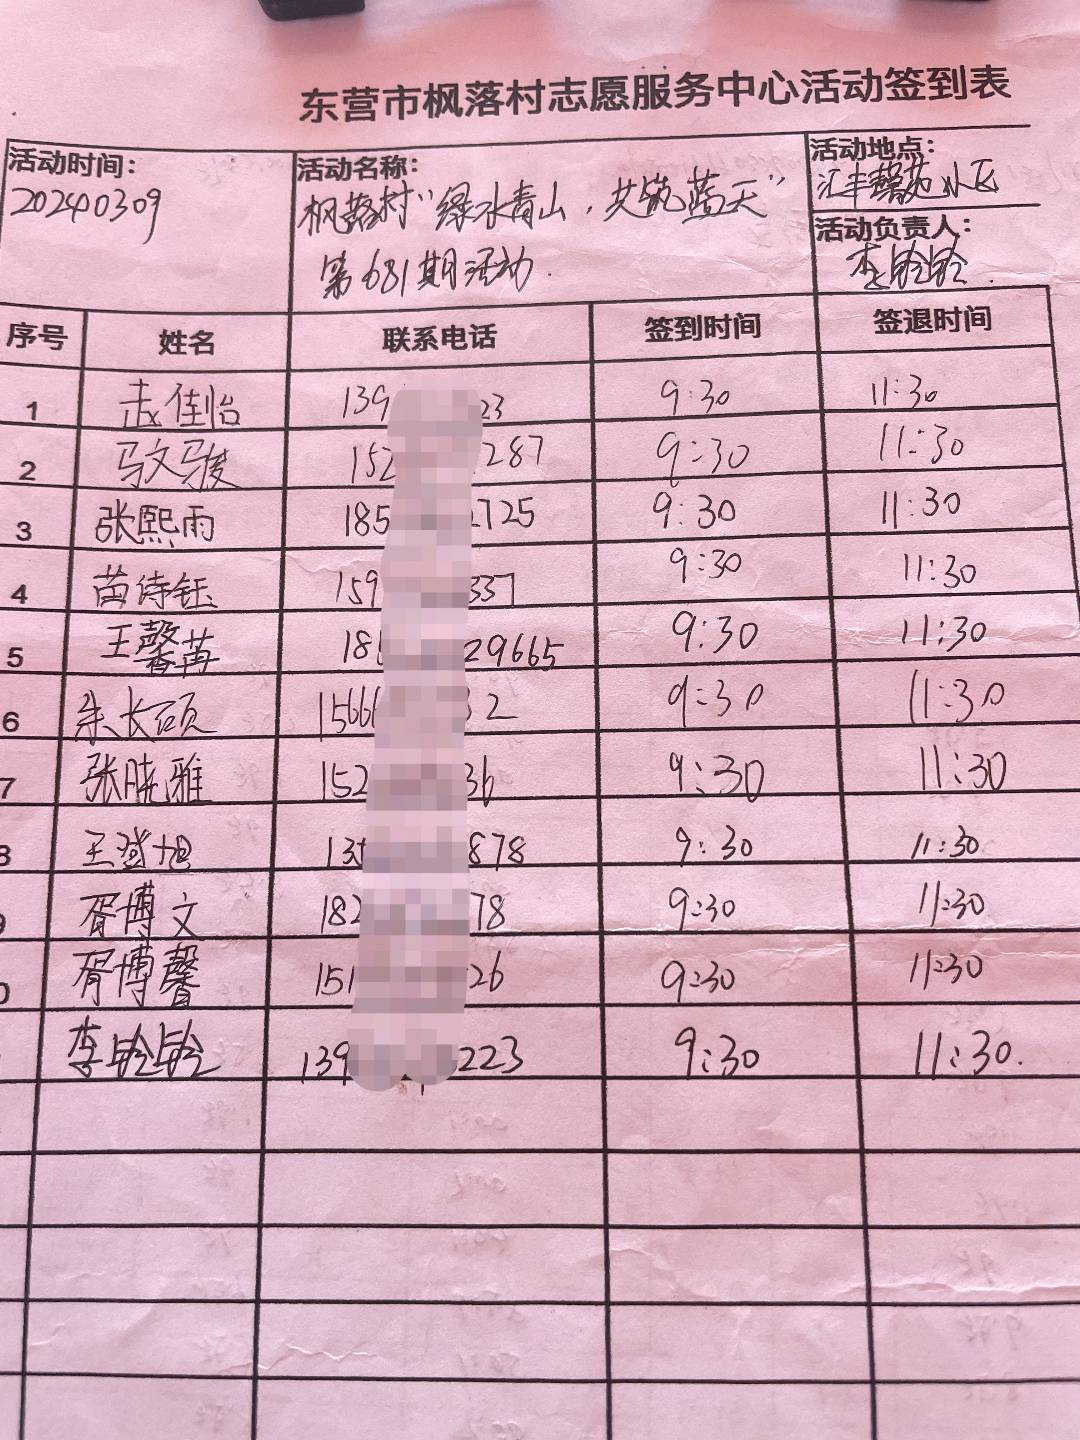 东营市枫落村志愿服务中心活动签到表
活动时间：
20240309
活动名称：
枫落村“绿水青山，共筑蓝天”
第681期活动.
活动地点：
汇丰馨苑小区
活动负责人：
李铃铃.
序号 姓名 联系电话 签到时间 签退时间
1 孟佳怡 139 23 9:30 11:30
2 马文骏 152 287 9:30 11:30
3 张熙雨 185 2725 9:30 11:30
4 苗诗钰 159 337 9:30 11:30
5 王馨苒 18 29665 9:30 11:30
6 朱长硕 15666 32 9:30 11:30
7 张晓雅 152 36 9:30 11:30
8 王登旭 13 878 9:30 11:30
9 胥博文 182 78 9:30 11:30
0 胥博馨 151 26 9:30 11:30
李铃铃 139 223 9:30 11:30.